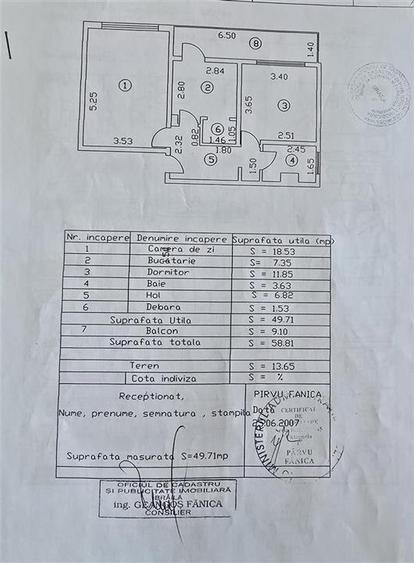 6.50
8
1.40
2.84
3.40
1
2.80
2
5.25
3.65
3
6
1.05
2.32
0.82
1.46
2.51
3.53
1.80
2.45
5
1.50
4
1.65
Nr. incapere Denumire incapere Suprafata utila (mp)
1 Camera de zi S = 18.53
2 Bucatarie S= 7.35
3 Dormitor S = 11.85
4 Baie S = 3.63
5 Hol S = 6.82
6 Debara S = 1.53
Suprafata Utila S = 49.71
7 Balcon S = 9.10
Suprafata totala S = 58.81
Teren S = 13.65
Cota indiviza S = %
Receptionat, PIRVU FANICA
Nume, prenume, semnatura , stampila Data
06.2007
CERTIFICAT
DE
PÂRVU
FĂNICA
Suprafata masurata S=49.71mp
OFICIUL DE CADASTRU
ŞI PUBLICITATE IMOBILIARĂ
BRĂILA
ing. FĂNICA
CONSILIER